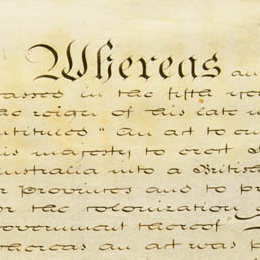 Whereas an
passed in the fifth ye
the reign of his late
entituled "An act to
his majesty to erect S
Australia into a British
or Provinces and to pr
for the colonization
Government thereof
whereas an act was p